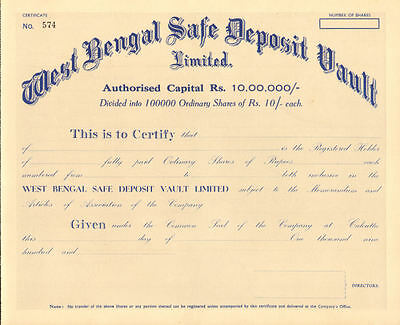 CERTIFICATE
No. 574
NUMBER OF SHARES
West Bengal Safe Deposit Vault
Limited.
Authorised Capital Rs. 10,00,000/-
Divided into 100000 Ordinary Shares of Rs. 10/- each.
This is to Certify that
of is the Registered Holder
of fully paid Ordinary Shares of Rupees each
numbered from to both inclusive in the
WEST BENGAL SAFE DEPOSIT VAULT LIMITED subject to the Memorandum and
Articles of Association of the Company
Given under the Common Seal of the Company at Calcutta
this day of One thousand nine
hundred and
DIRECTORS.
Note:- No transfer of the above Shares or any portion thereof can be registered unless accompanied by this certificate and delivered at the Company's Office.